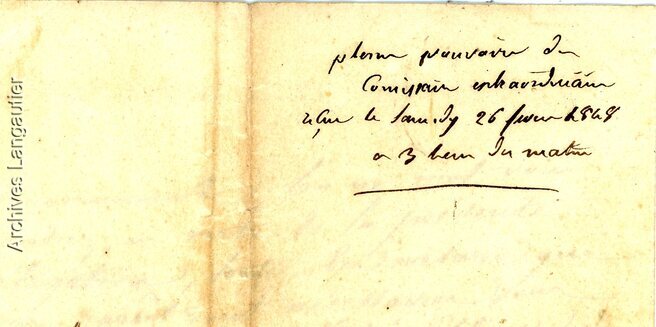 pleins pouvoirs du
Comissaire extraordinaire
reçu le samedy 26 fevrier 1848
a 3 heure du matin
Archives Langautier